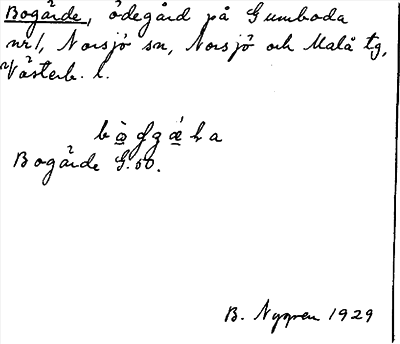 Bogärde, ödegård på Gumboda
nr 1, Norsjö sn, Norsjö och Malå tg,
Västerb. l.
Bogärde G. 50.
B. Nygren 1929